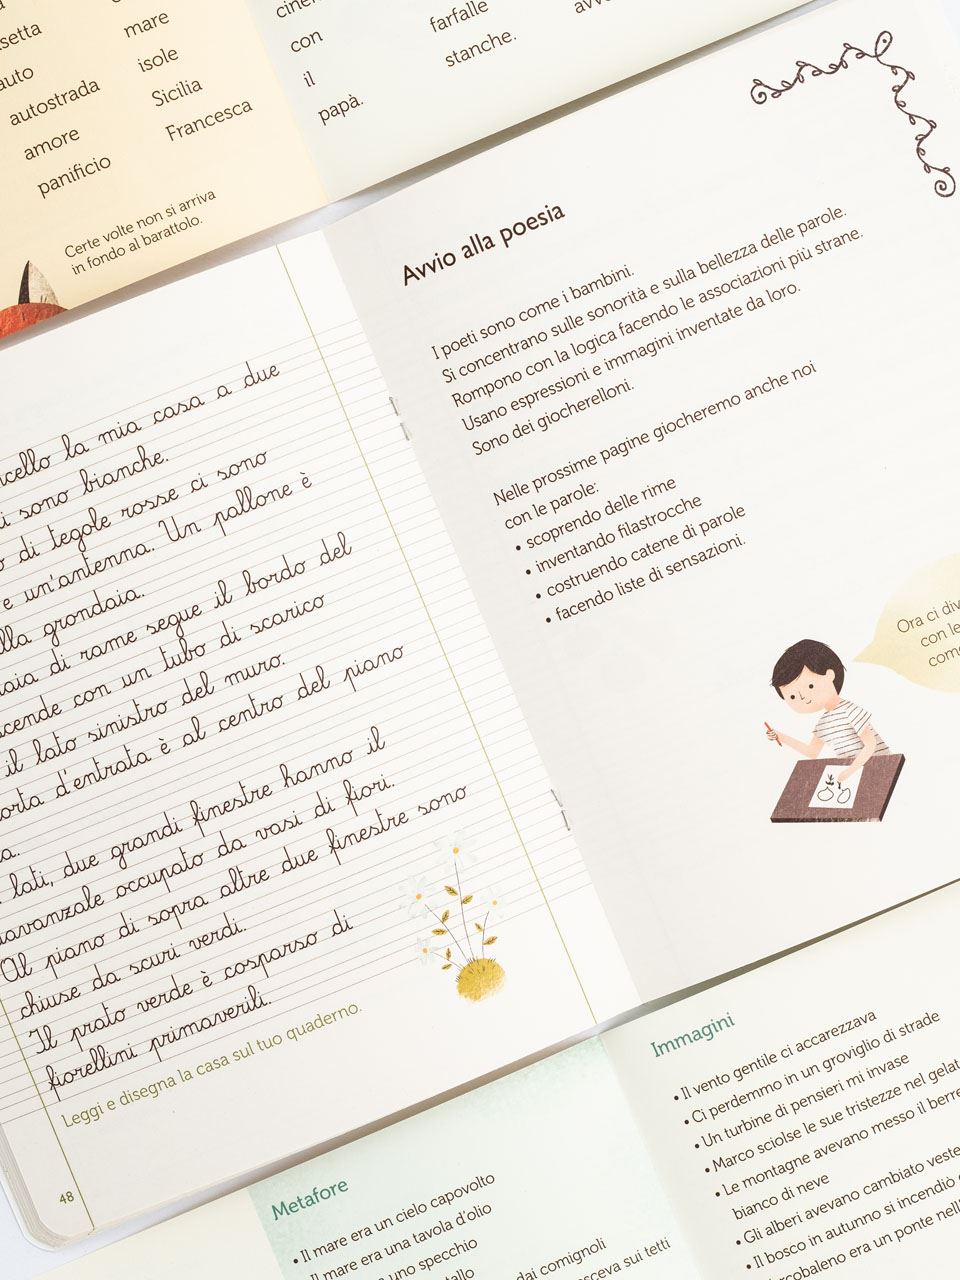 setta
auto
autostrada
amore
panificio
mare
isole
Sicilia
Francesca
Certe volte non si arriva
in fondo al barattolo.
con
il
papà.
farfalle
stanche.
la mia casa a due
sono bianche.
di tegole rosse ci sono
e un'antenna. Un pallone è
grondaia.
di rame segue il bordo del
con un tubo di scarico
il lato sinistro del muro.
d'entrata è al centro del piano
lati, due grandi finestre hanno il
occupato da vasi di fiori.
Al piano di sopra altre due finestre sono
chiuse da scuri verdi.
Il prato verde è cosparso di
fiorellini primaverili.
Leggi e disegna la casa sul tuo quaderno.
48
Avvio alla poesia
I poeti sono come i bambini.
Si concentrano sulle sonorità e sulla bellezza delle parole.
Rompono con la logica facendo le associazioni più strane.
Usano espressioni e immagini inventate da loro.
Sono dei giocherelloni.
Nelle prossime pagine giocheremo anche noi
con le parole:
• scoprendo delle rime
• inventando filastrocche
• costruendo catene di parole
• facendo liste di sensazioni.
Ora ci
con le
Metafore
• Il mare era un cielo capovolto
• Il mare era una tavola d'olio
uno specchio
dai comignoli
sui tetti
Immagini
• Il vento gentile ci accarezzava
• Ci perdemmo in un groviglio di strade
• Un turbine di pensieri mi invase
• Marco sciolse le sue tristezze nel
• Le montagne avevano messo il
bianco di neve
• Gli alberi avevano cambiato
• Il bosco in autunno si incendiò
era un ponte